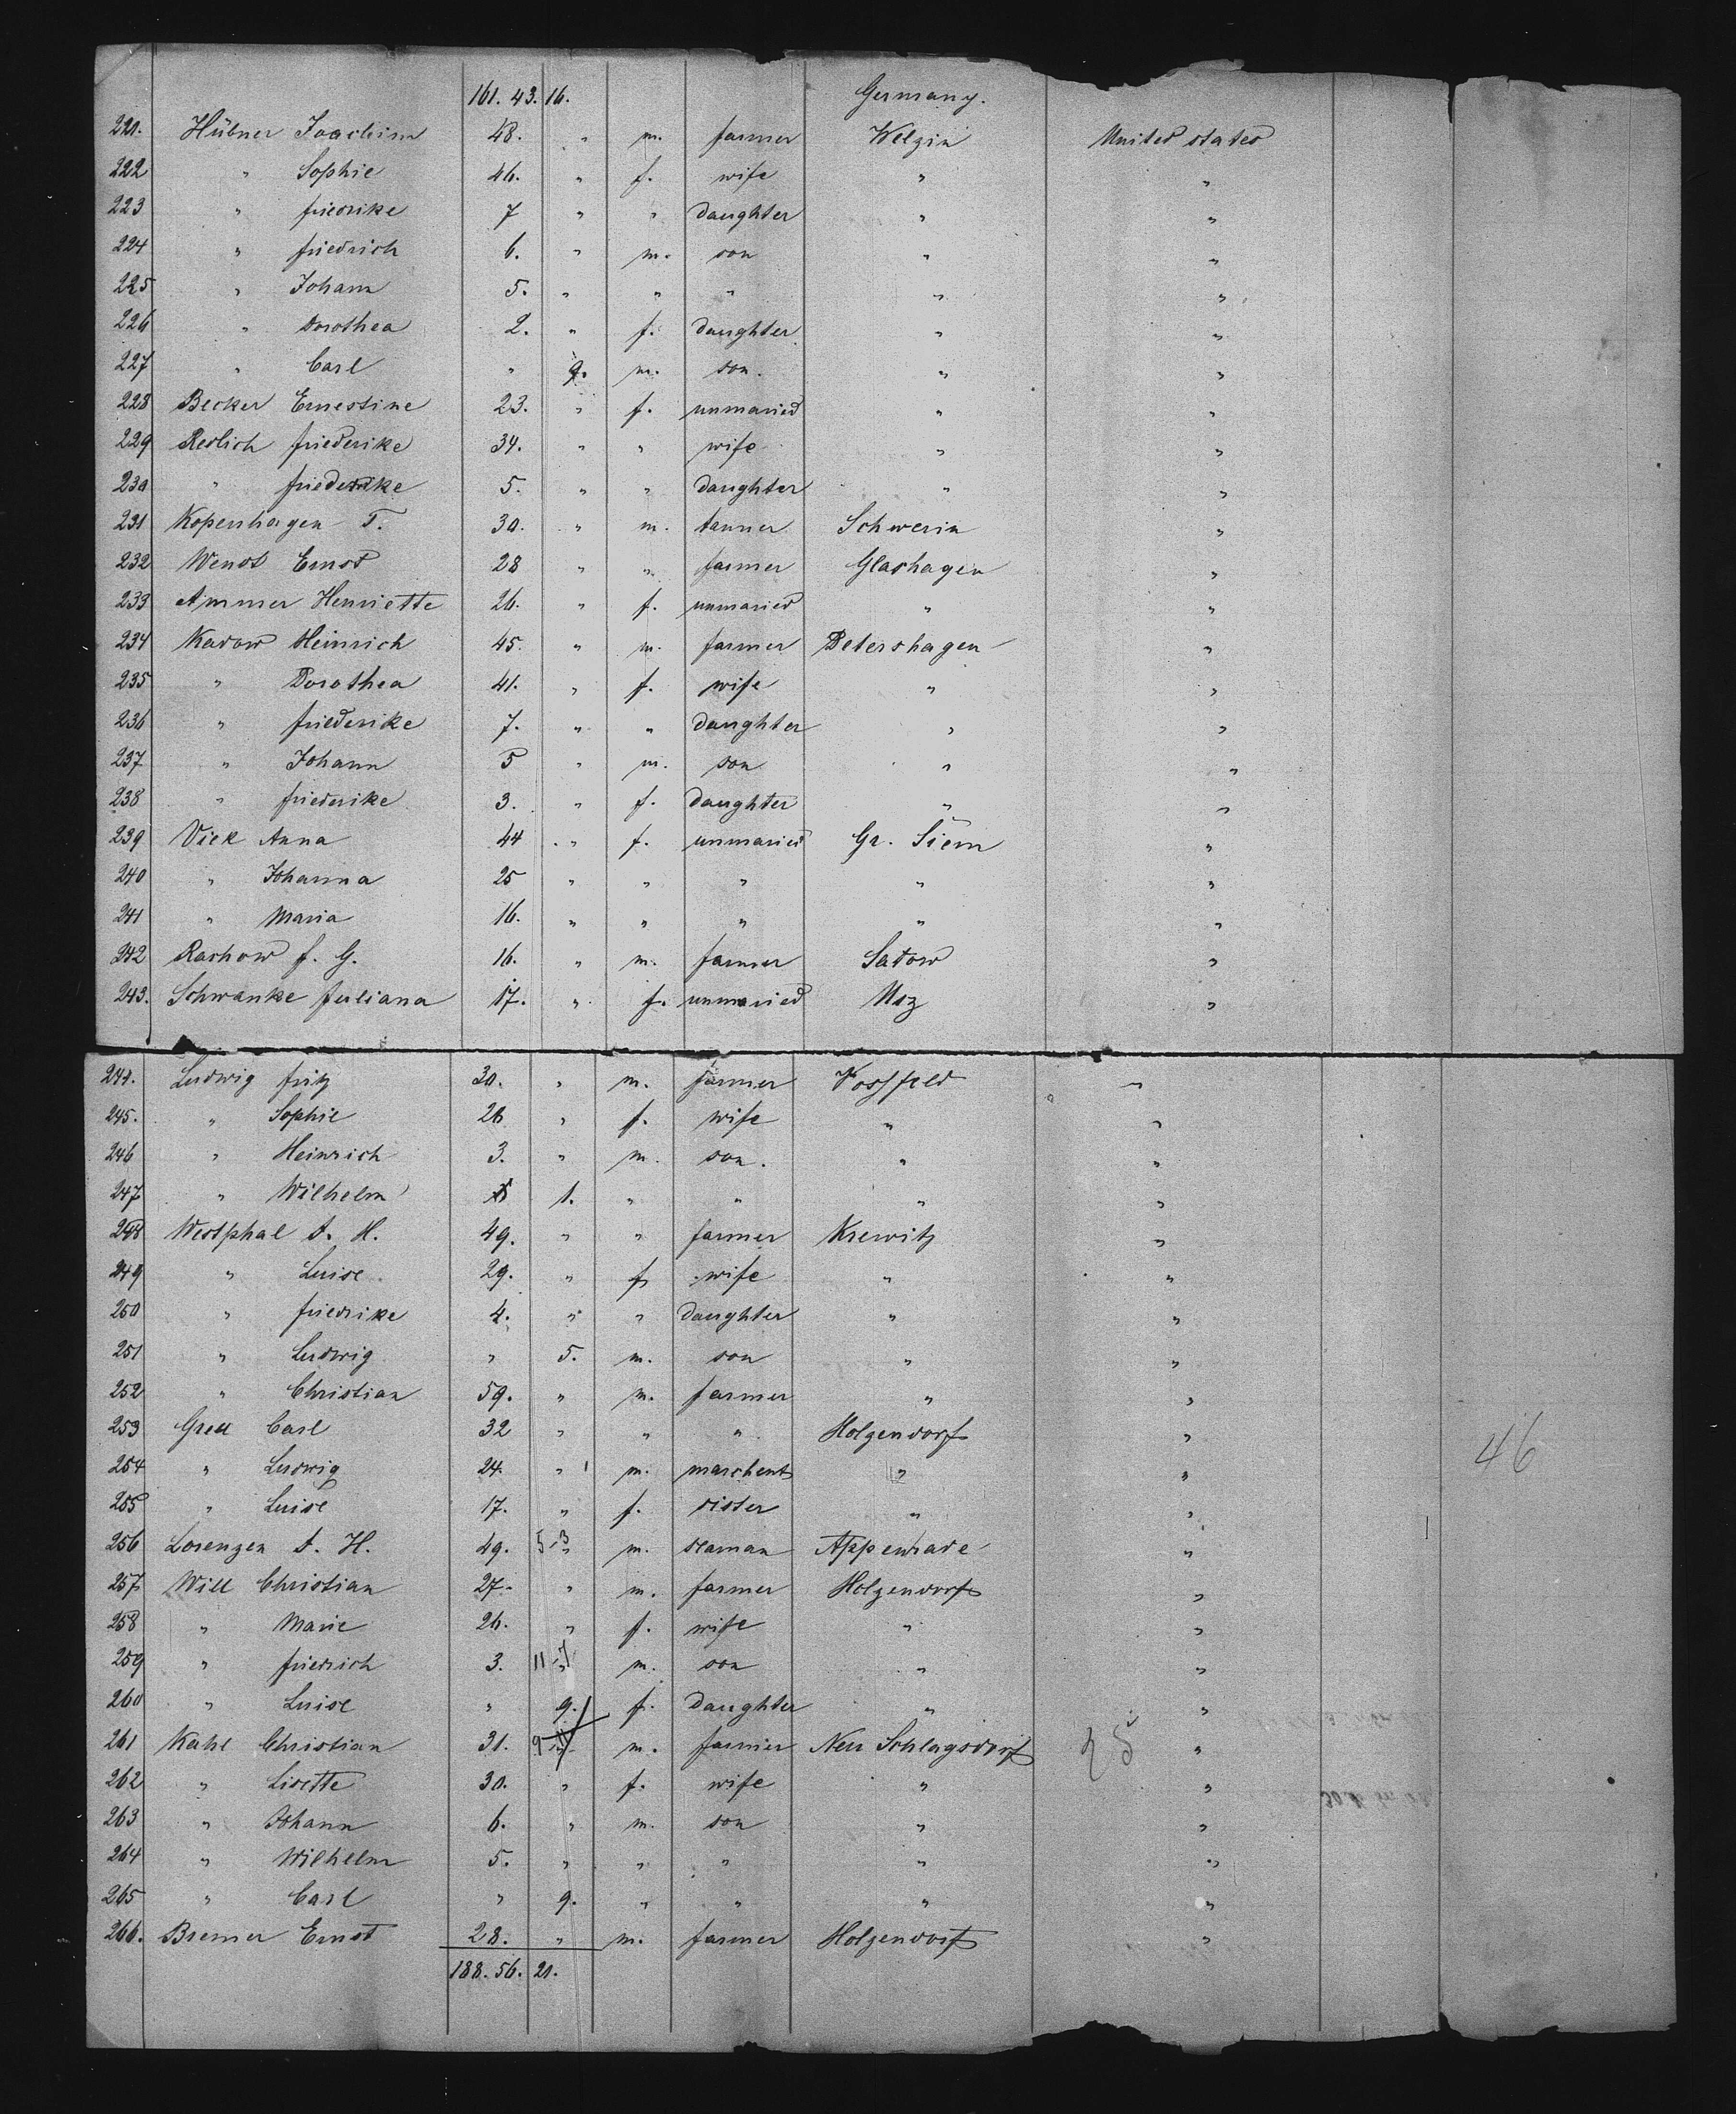 161. 43. 16. Germany.
221. Hübner Joachim 48. " m. farmer Welzin United states
222 " Sophie 46. " f. wife " "
223 " friedrike 7 " " daughter " "
224 " friedrich 6. " m. son " "
225 " Johann 5. " " " " "
226 " Dorothea 2. " f. daughter " "
227 " Carl " 9. m. son. " "
228 Becker Ernestine 23. " f. unmaried " "
229 Redlich friederike 34. " " wife " "
230 " friederike 5. " " daughter " "
231 Kopenhagen T. 30. " m. tanner Schwerin "
232 Wendt Ernst 28 " " farmer Glashagen "
233 Ammer Henriette 26. " f. unmaried " "
234 Kadow Heinrich 45. " m. farmer Petershagen "
235 " Dorothea 41. " f. wife " "
236 " friederike 7. " " daughter " "
237 " Johann 5 " m. son " "
238 " friederike 3. " f. daughter " "
239 Vick Anna 44 " f. unmaried Gr. Siem "
240 " Johanna 25 " " " " "
241 " Maria 16. " " " " "
242 Rashow f. G. 16. " m. farmer Satow "
243. Schwanke Juliana 17. " f. unmaried "
244. Ludwig fritz 30. " m. farmer Vossfeld "
245. " Sophie 26 " f. wife " "
246 " Heinrich 3. " m. son. " "
247 " Wilhelm 1. " " " "
248 Westphal A. H. 49. " " farmer Krewitz "
249 " Luise 29. " f. wife " "
250 " friedrike 4. " " daughter " "
251 " Ludwig " 5. m. son " "
252 " Christian 59. " m. farmer " "
253 Grell Carl 32 " " " Holzendorf "
254 " Ludwig 24. " m. marchent " "
255 " Luise 17. " f. sister " "
46
256 Lorenzen A. H. 49. " m. seaman Appenrade "
257 Will Christian 27. " m. farmer Holzendorf "
258 " Marie 26. " f. wife " "
259 " friedrich 3. " m. son " "
260 " Luise " 9. f. daughter " "
261 Kahl Christian 31. m. farmer Neu Schlagsdorf "
262 " Lisette 30. " f. wife " "
263 " Johann 6. " m. son " "
264 " Wilhelm 5. " " " " "
265 " Carl " 9. " " " "
266. Bremer Ernst 28. " m. farmer Holzendorf "
188. 56. 21.